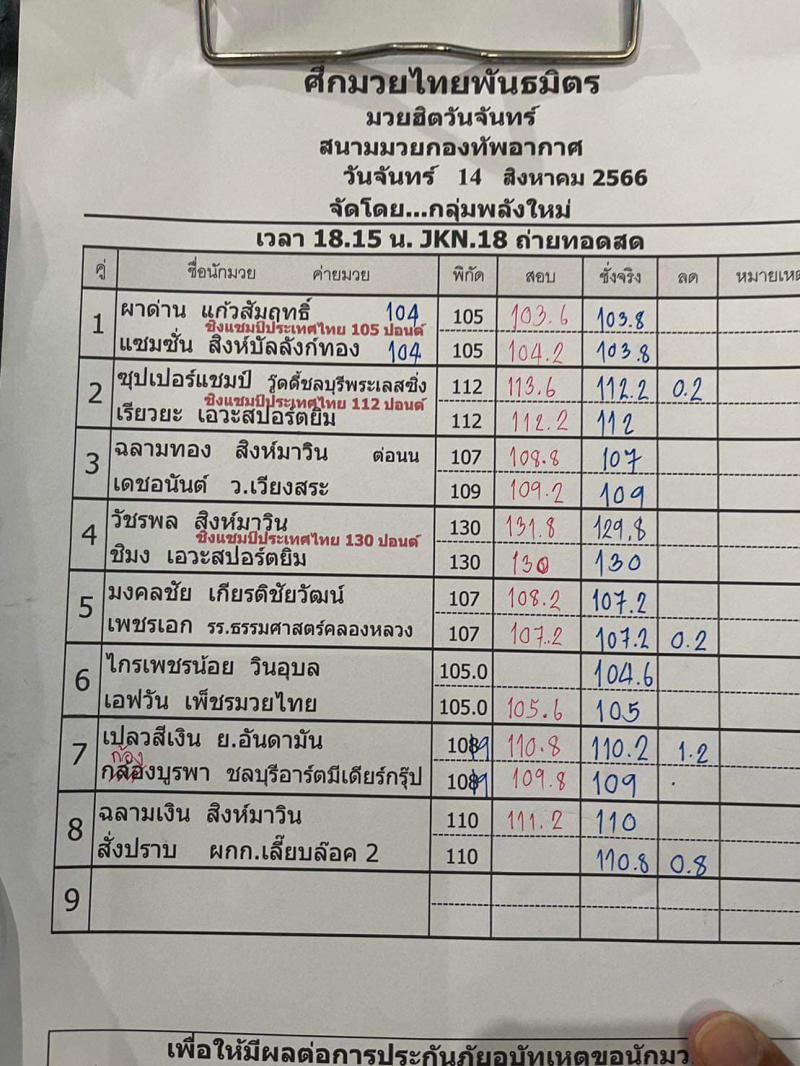 ศึกมวยไทยพันธมิตร
มวยฮิตวันจันทร์
สนามมวยกองทัพอากาศ
วันจันทร์ 14 สิงหาคม 2566
จัดโดย...กลุ่มพลังใหม่
เวลา 18.15 น. JKN.18 ถ่ายทอดสด
คู่ ชื่อนักมวย ค่ายมวย พิกัด สอบ ชั่งจริง ลด หมายเหต
1 ผาด่าน แก้วสัมฤทธิ์ 104 105 103.6 103.8
ชิงแชมป์ประเทศไทย 105 ปอนด์
แซมซั่น สิงห์บัลลังก์ทอง 104 105 104.2 103.8
2 ซุปเปอร์แชมป์ วู๊ดดี้ชลบุรีพระเลสซิ่ง 112 113.6 112.2 0.2
ชิงแชมป์ประเทศไทย 112 ปอนด์
เรียวยะ เอวะสปอร์ตยิม 112 112.2 112
3 ฉลามทอง สิงห์มาวิน ต่อนน 107 108.8 107
เดชอนันต์ ว.เวียงสระ 109 109.2 109
4 วัชรพล สิงห์มาวิน 130 131.8 129.8
ชิงแชมป์ประเทศไทย 130 ปอนด์
ชิมง เอวะสปอร์ตยิม 130 130 130
5 มงคลชัย เกียรติชัยวัฒน์ 107 108.2 107.2
เพชรเอก รร.ธรรมศาสตร์คลองหลวง 107 107.2 107.2 0.2
6 ไกรเพชรน้อย วินอุบล 105.0 104.6
เอฟวัน เพ็ชรมวยไทย 105.0 105.6 105
7 เปลวสีเงิน ย.อันดามัน 109 110.8 110.2 1.2
ก้อง
กล้องบูรพา ชลบุรีอาร์ตมีเดียร์กรุ๊ป 109 109.8 109
8 ฉลามเงิน สิงห์มาวิน 110 111.2 110
สั่งปราบ ผกก.เลี๊ยบล๊อค 2 110 110.8 0.8
9
เพื่อให้มีผลต่อการประกันภัยอุบัทเหตุขอนักมว